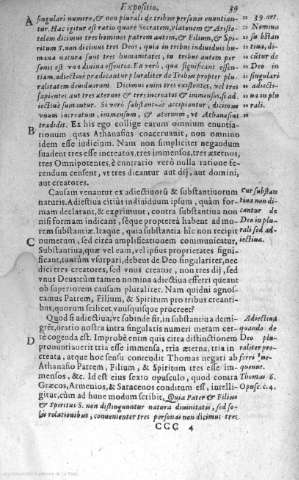 Expositio. 39
singulari numero, & non plurali de tribus personis enuntian-
tur. Hæc igitur est ratio quare Vocatem, vlatumem & Ariste-
telem dicimus tres homines patrem autem, & Filium, & Spi-
ritum S. non dicimus tres Deos, quia in tribus indiuiduis hu-
mana natura sunt tres humanitates, in tribus autem per-
sonis est vna diuina essentia. Ea verò, quæ significant essen-
tiam adiectiuè prædicantur pluraliter de Tribus propter plu-
ralitatem diuiduorum. Dicimus enim tres existentes, vel tres
sapientes aut tres æternos & tres increatos & immensos, si ad-
iectiuè sumantur. Si verò substantiuè accipiantur, dicimus
vnum increatum, immensum, & æternum, vt Athanasius
tradidit. Ex his ergo collige earum omnium enuntia-
tionum quas Athanasius coaceruauit, non omnium
idem esse iudicium. Nam non simpliciter negandum
suadent tres esse increatos, tres immensos, tres æternos,
tres Omnipotentes, è contrario verò nulla ratione fe-
rendum censent, vt tres dicantur aut dij, aut domini,
aut creatores.
Causam venantur ex adiectiuorũ & substantiuorum
natura. Adiectiua citius indiuiduum ipsum, quàm for-
mam declarant, & exprimunt, contra substantiua non
nisi formam indicant, seque propterea habent ad mo-
rem substantiæ. Itaque, quia substantia hîc non recipit
numerum, sed circa amplificationem communicatur,
Substantiua, quæ vel eam, vel ipsius proprietates signi-
ficant, tantùm vsurpari, debent de Deo singulariter, nec
dici tres creatores, sed vnus creator, non tres dij, sed
vnus Deus: cùm tamen nomina adiectiua efferri queant
ob superiorem causam pluraliter. Nam quidni agnos-
camus Patrem, Filium, & Spiritum pro tribus creanti-
bus, quorum scilicet vnusquisque procreet?
Quod si adiectiua, vt subinde fit, in substantiua demi-
gret, oratio nostra intra singularis numeri metam cer-
tè cogenda est. Improbè enim quis citra distinctionem
pronuntiauerit tria esse immensa, tria æterna, tria in
creata, atque hoc sensu concedit Thomas negari ab
Athanasio Patrem, Filium, & Spiritum tres esse im-
mensos, &c. Id est eius sexto opusculo, quod contra
Græcos, Armenios, & Saracenos conditum est, intelli-
gitur, cùm ad hunc modum scribit, Quia Pater & Filius
& Spiritus S. non distinguntur natura diuinitatis, sed so-
lis relationibus, conuenienter tres personas non dicimus tres
CCC 4
A
B
C
D
Cur substā
tiua non di-
cantur de
Deo in plu-
rali, sed ad-
iectiua.
Adiectiua
quando de
Deo plu-
raliter pro-
ferri ne-
queunt.
Thomas 6.
Opusc. c. 4.